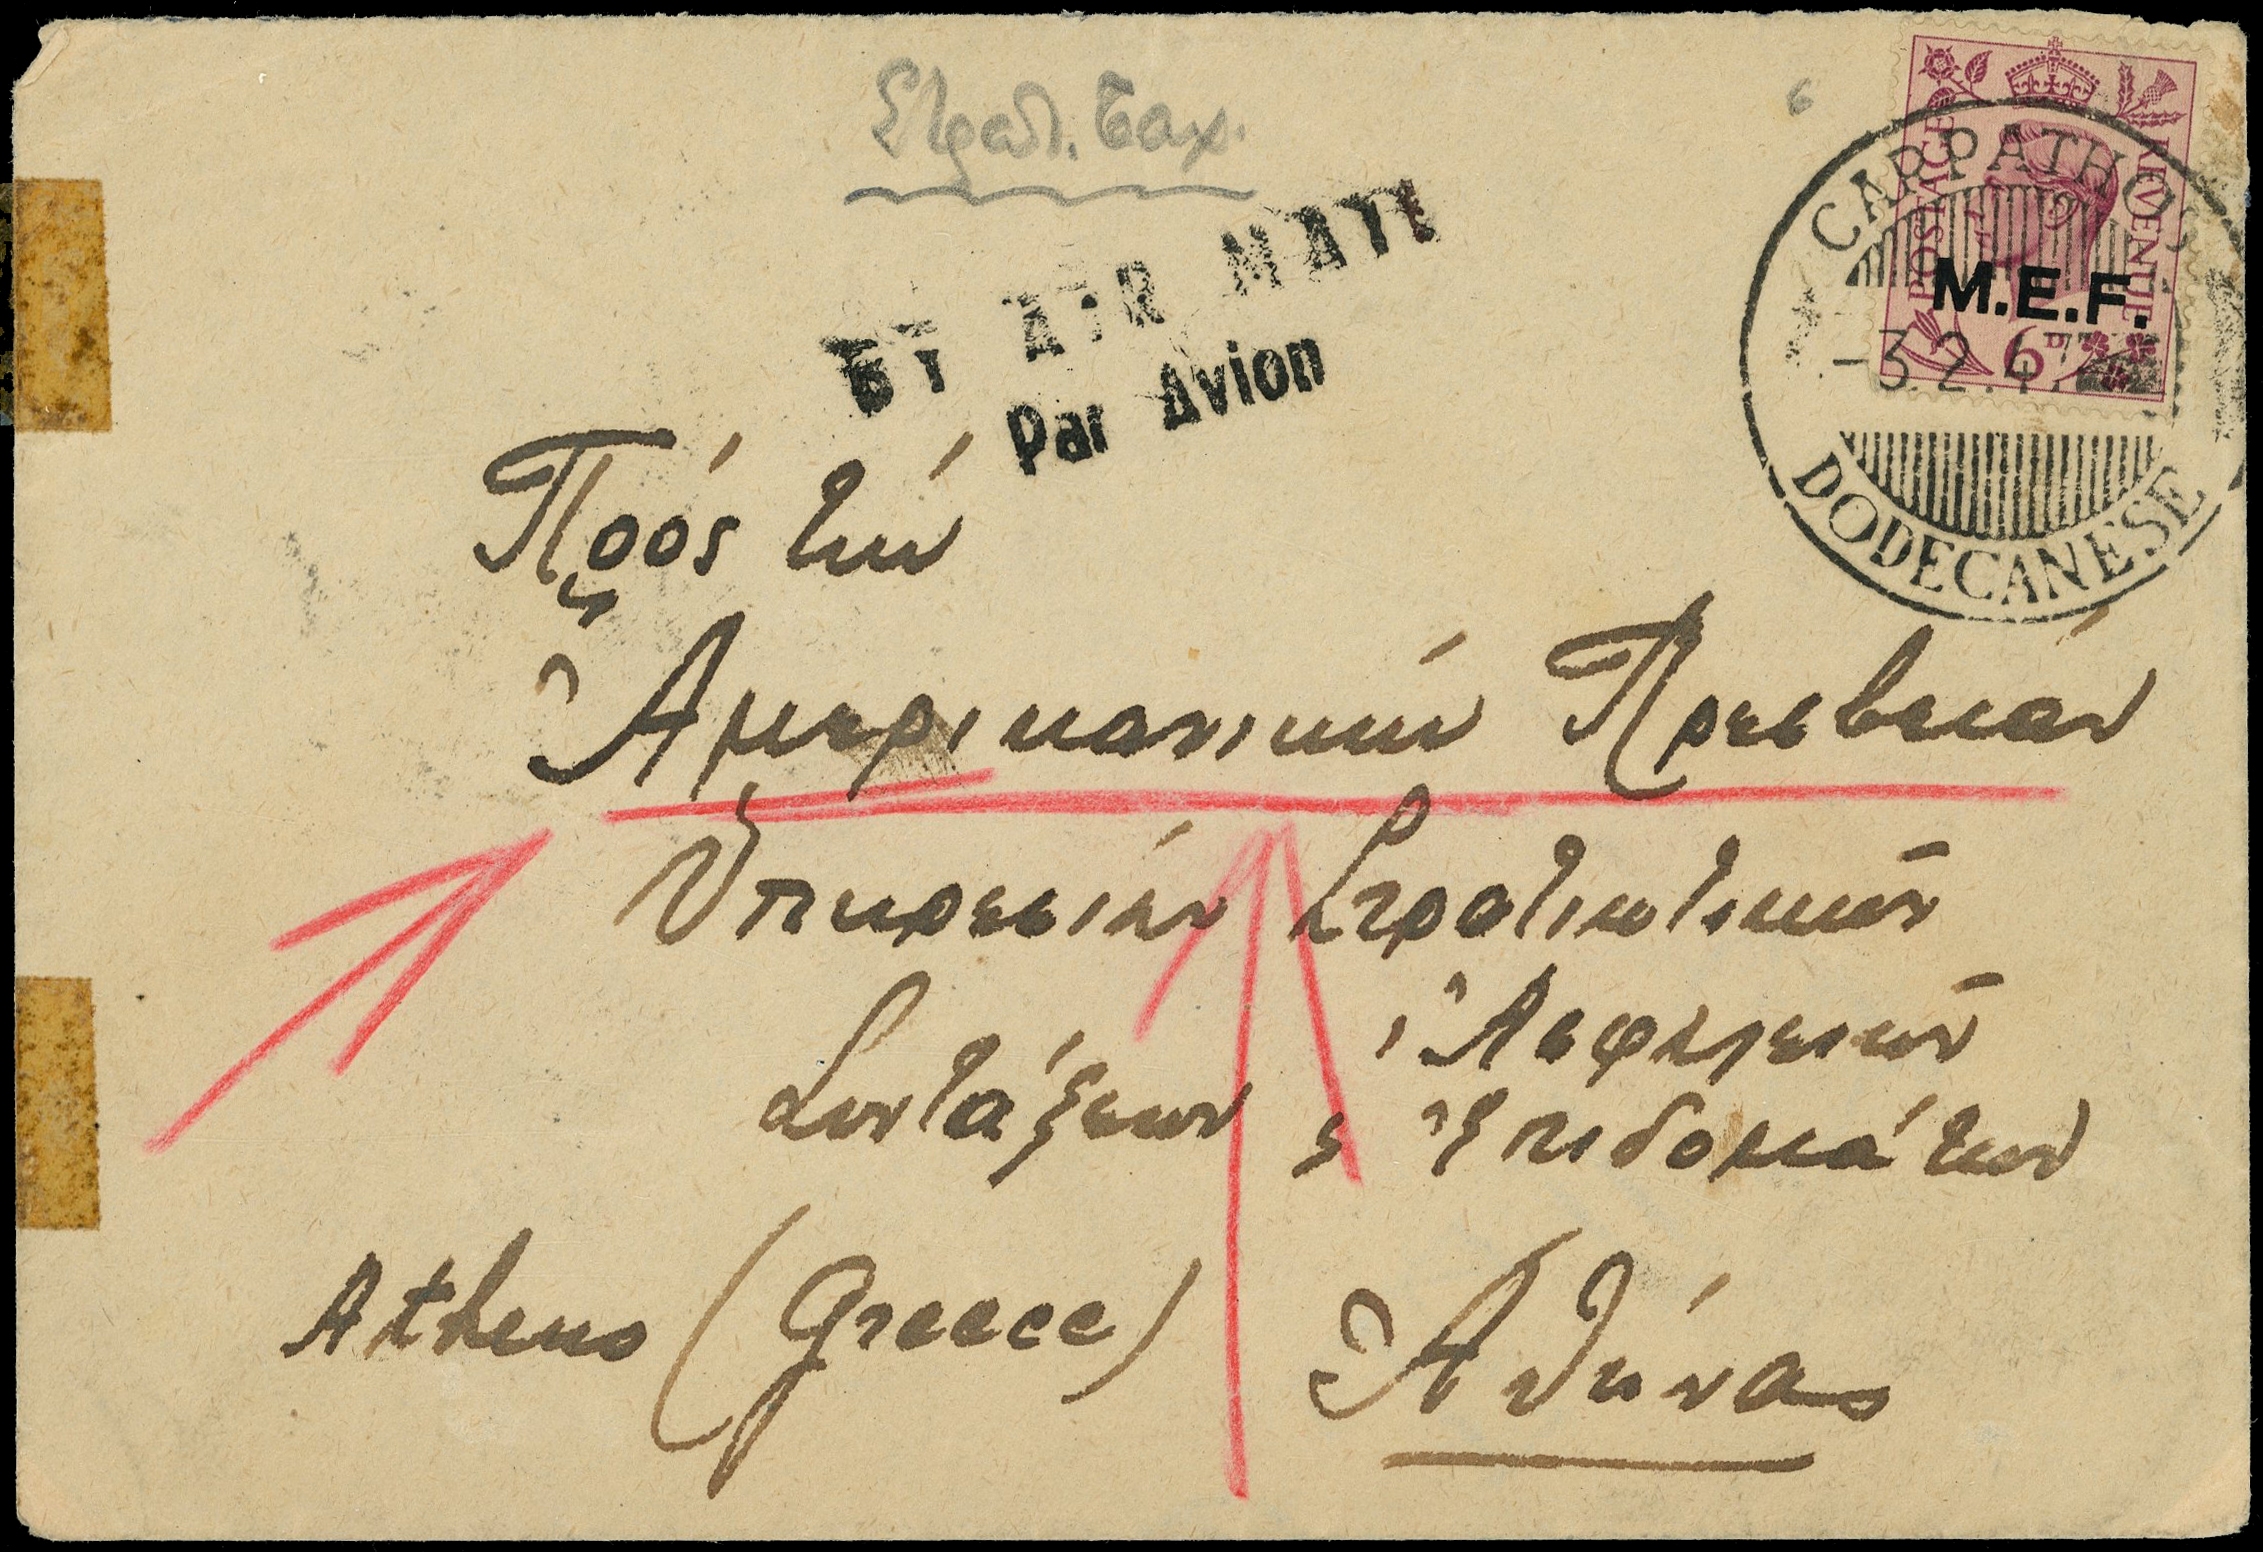 Στρατ. Ταχ.
BY AIR MAIL
Par Avion
POSTAGE REVENUE
M.E.F.
6D
CARPATHOS
-3.2.47
DODECANESE
Πρός τήν
Ἀμερικανικήν Πρεσβείαν
Ὑπηρεσίαν Στρατιωτικῶν
Συντάξεων , Ὠφελειῶν
ϗ Ἐπιδομάτων
Athens (Greece) Ἀθήνας